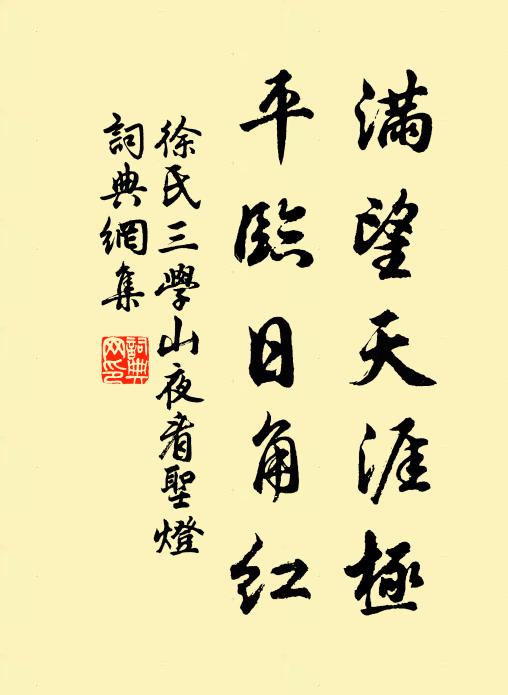 滿望天涯極
平臨日角紅
徐氏三學山夜看聖燈
詞典網集
詞典网印